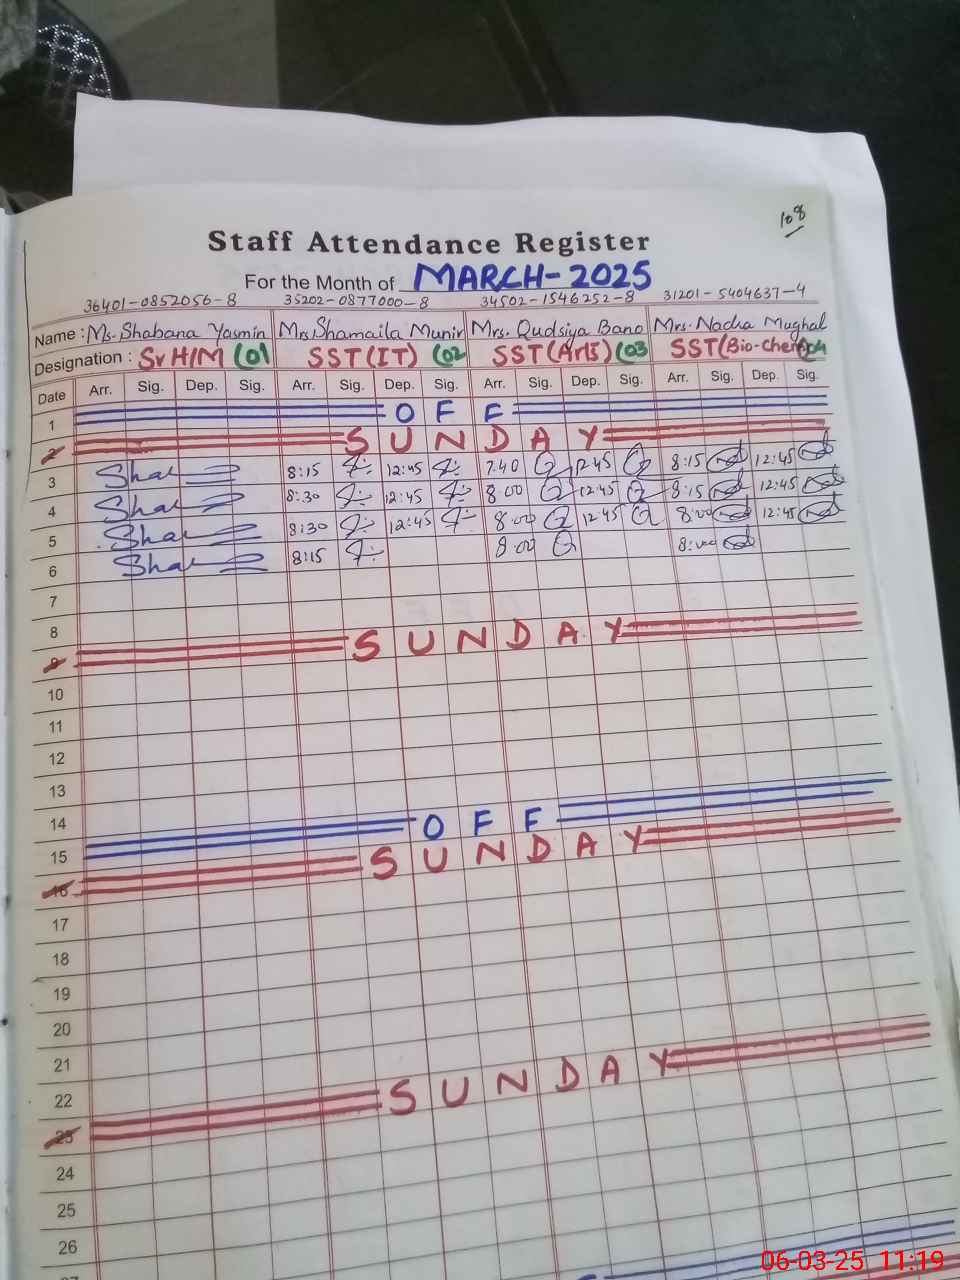 108
Staff Attendance Register
For the Month of MARCH-2025
36401-0852056-8 35202-0877000-8 34502-1546252-8 31201-5404637-4
Name : Ms. Shabana Yasmin Mrs. Shamaila Munir Mrs. Qudsiya Bano Mrs. Nadra Mughal
Designation : Sr H/M (01 SST(IT) (02 SST(Arts) (03 SST(Bio-chem) 04
Date Arr. Sig. Dep. Sig. Arr. Sig. Dep. Sig. Arr. Sig. Dep. Sig. Arr. Sig. Dep. Sig.
1 OFF
2 SUNDAY
3 8:15 12:45 7:40 12:45 8:15 12:45
4 8:30 12:45 8:00 12:45 8:15 12:45
5 8:30 12:45 8:00 12:45 8:00 12:45
6 8:15 8:00 8:00
7
8
9 SUNDAY
10
11
12
13
14
15 OFF
16 SUNDAY
17
18
19
20
21
22
23 SUNDAY
24
25
26
06-03-25 11:19